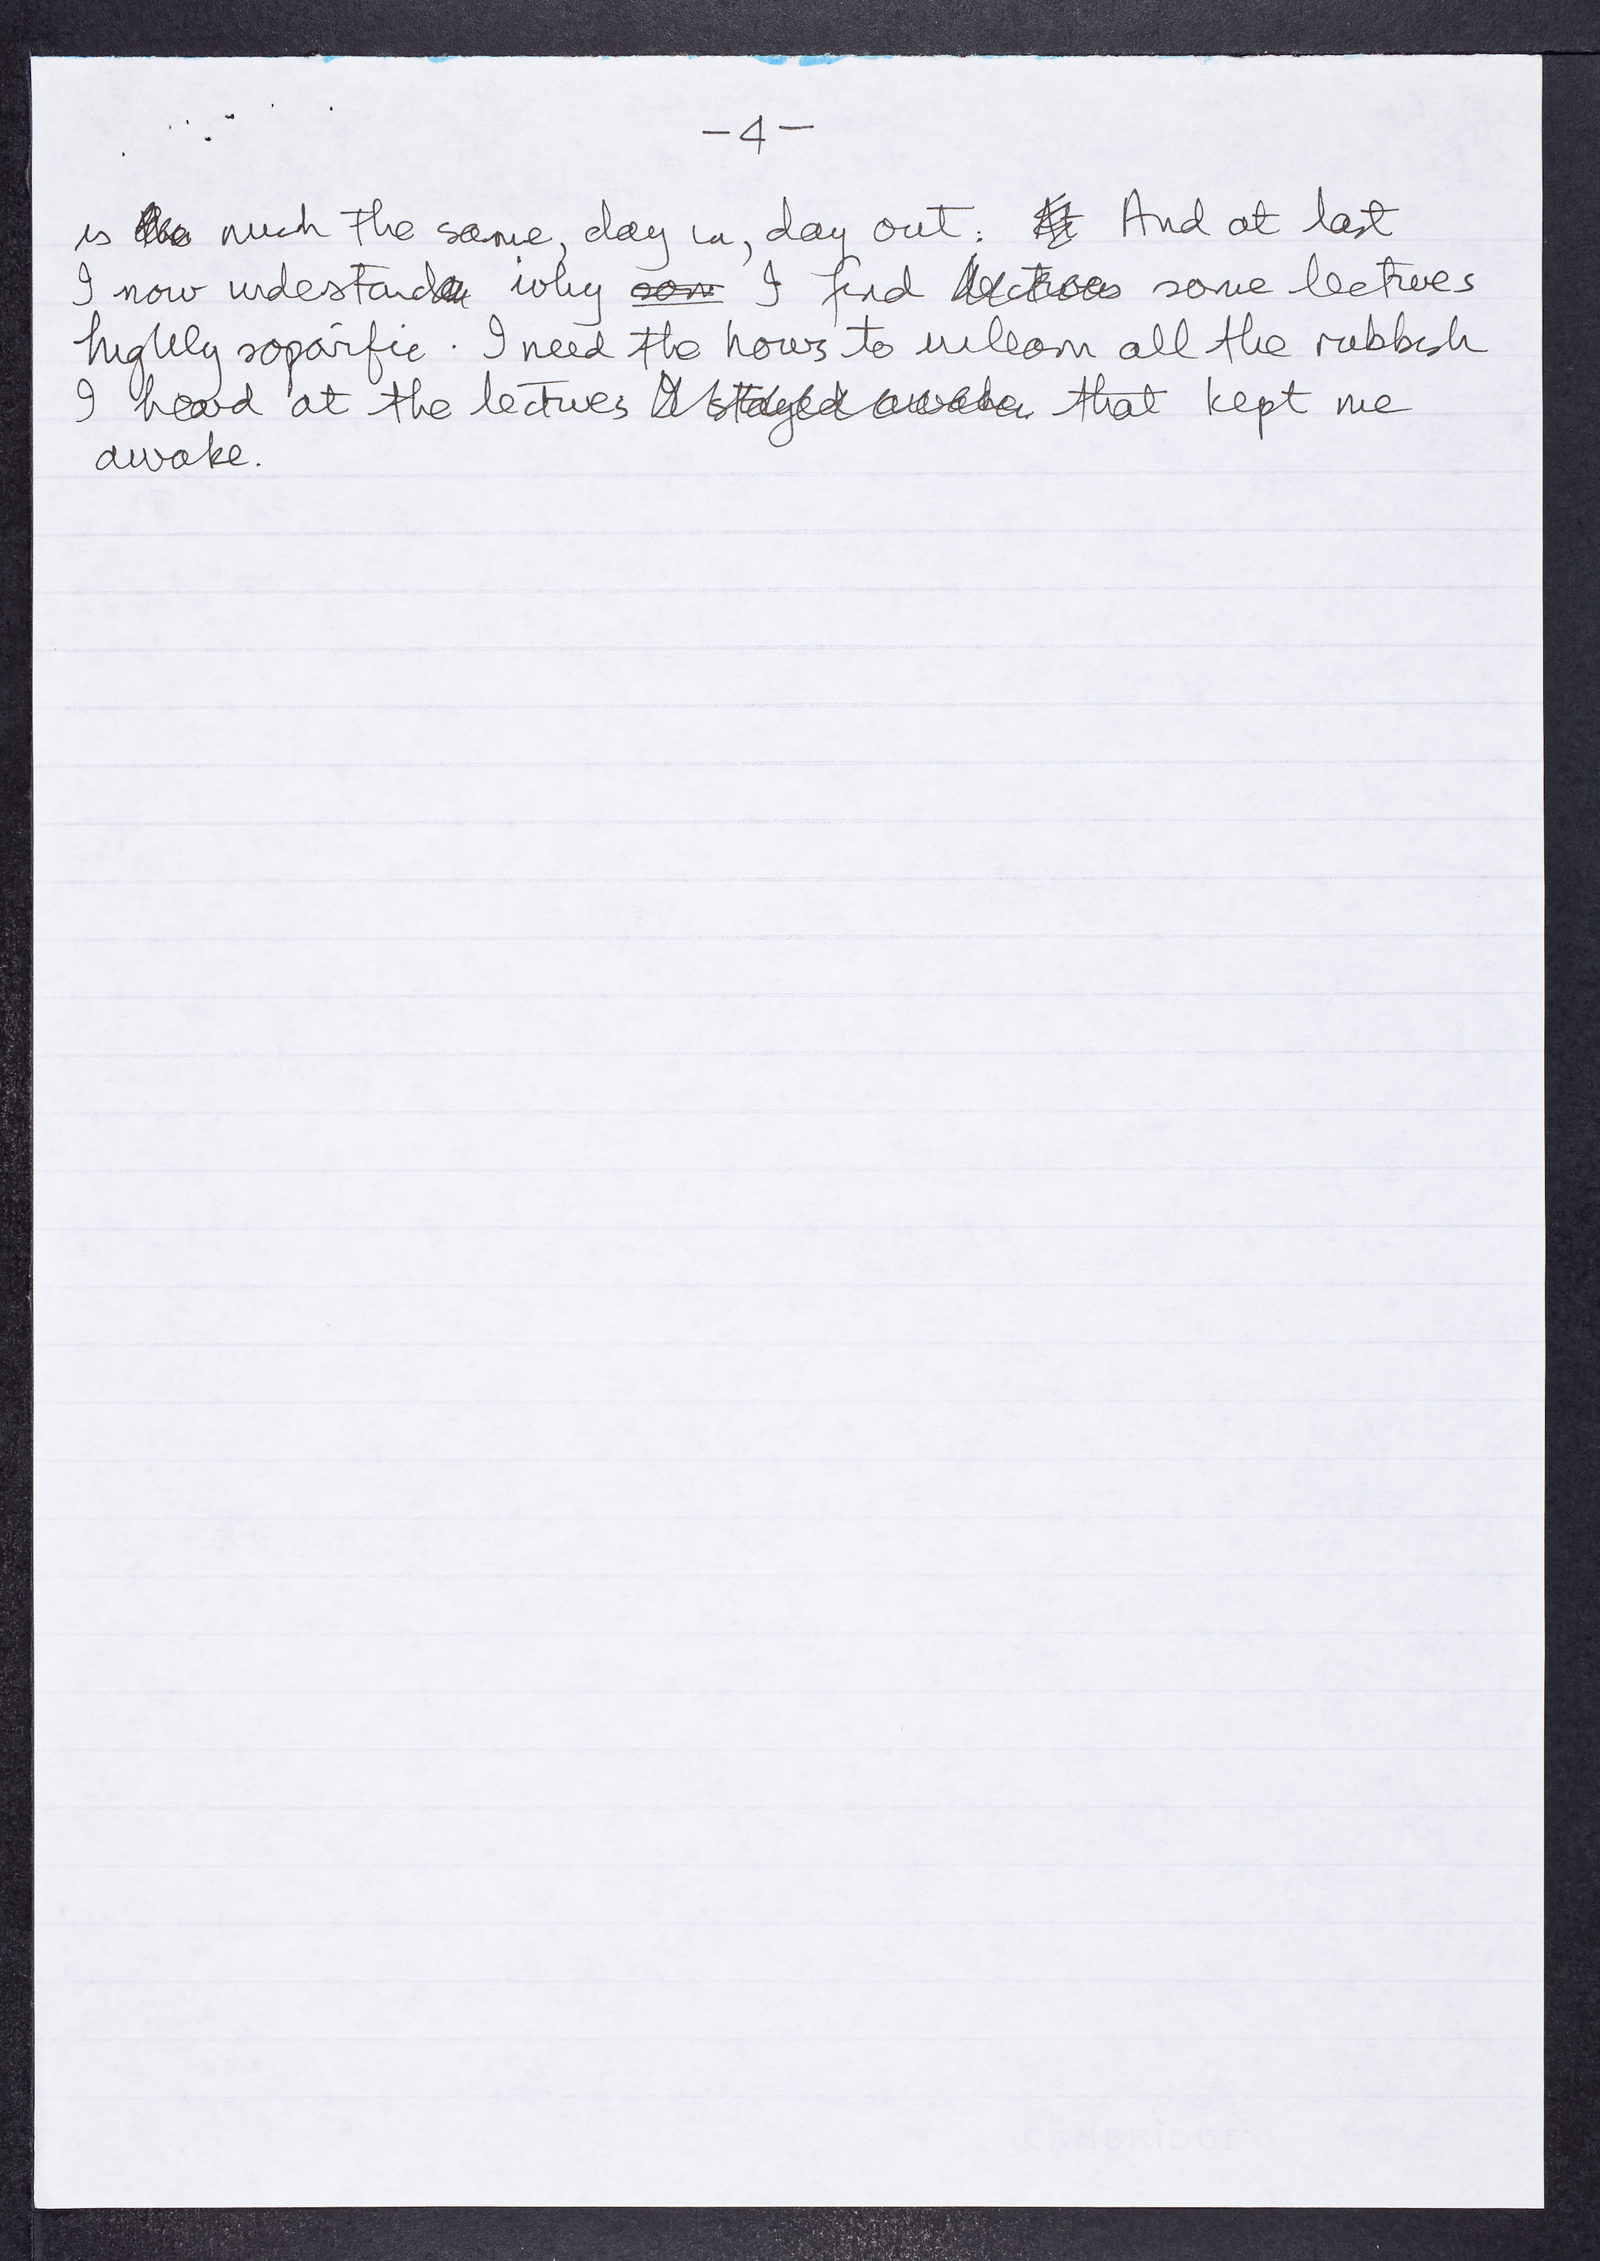 -4-
is much the same, day in, day out. And at last
I now understand why som I find lectures some lectures
highly soporific. I need the hours to unlearn all the rubbish
I heard at the lectures I stayed awake that kept me
awake.